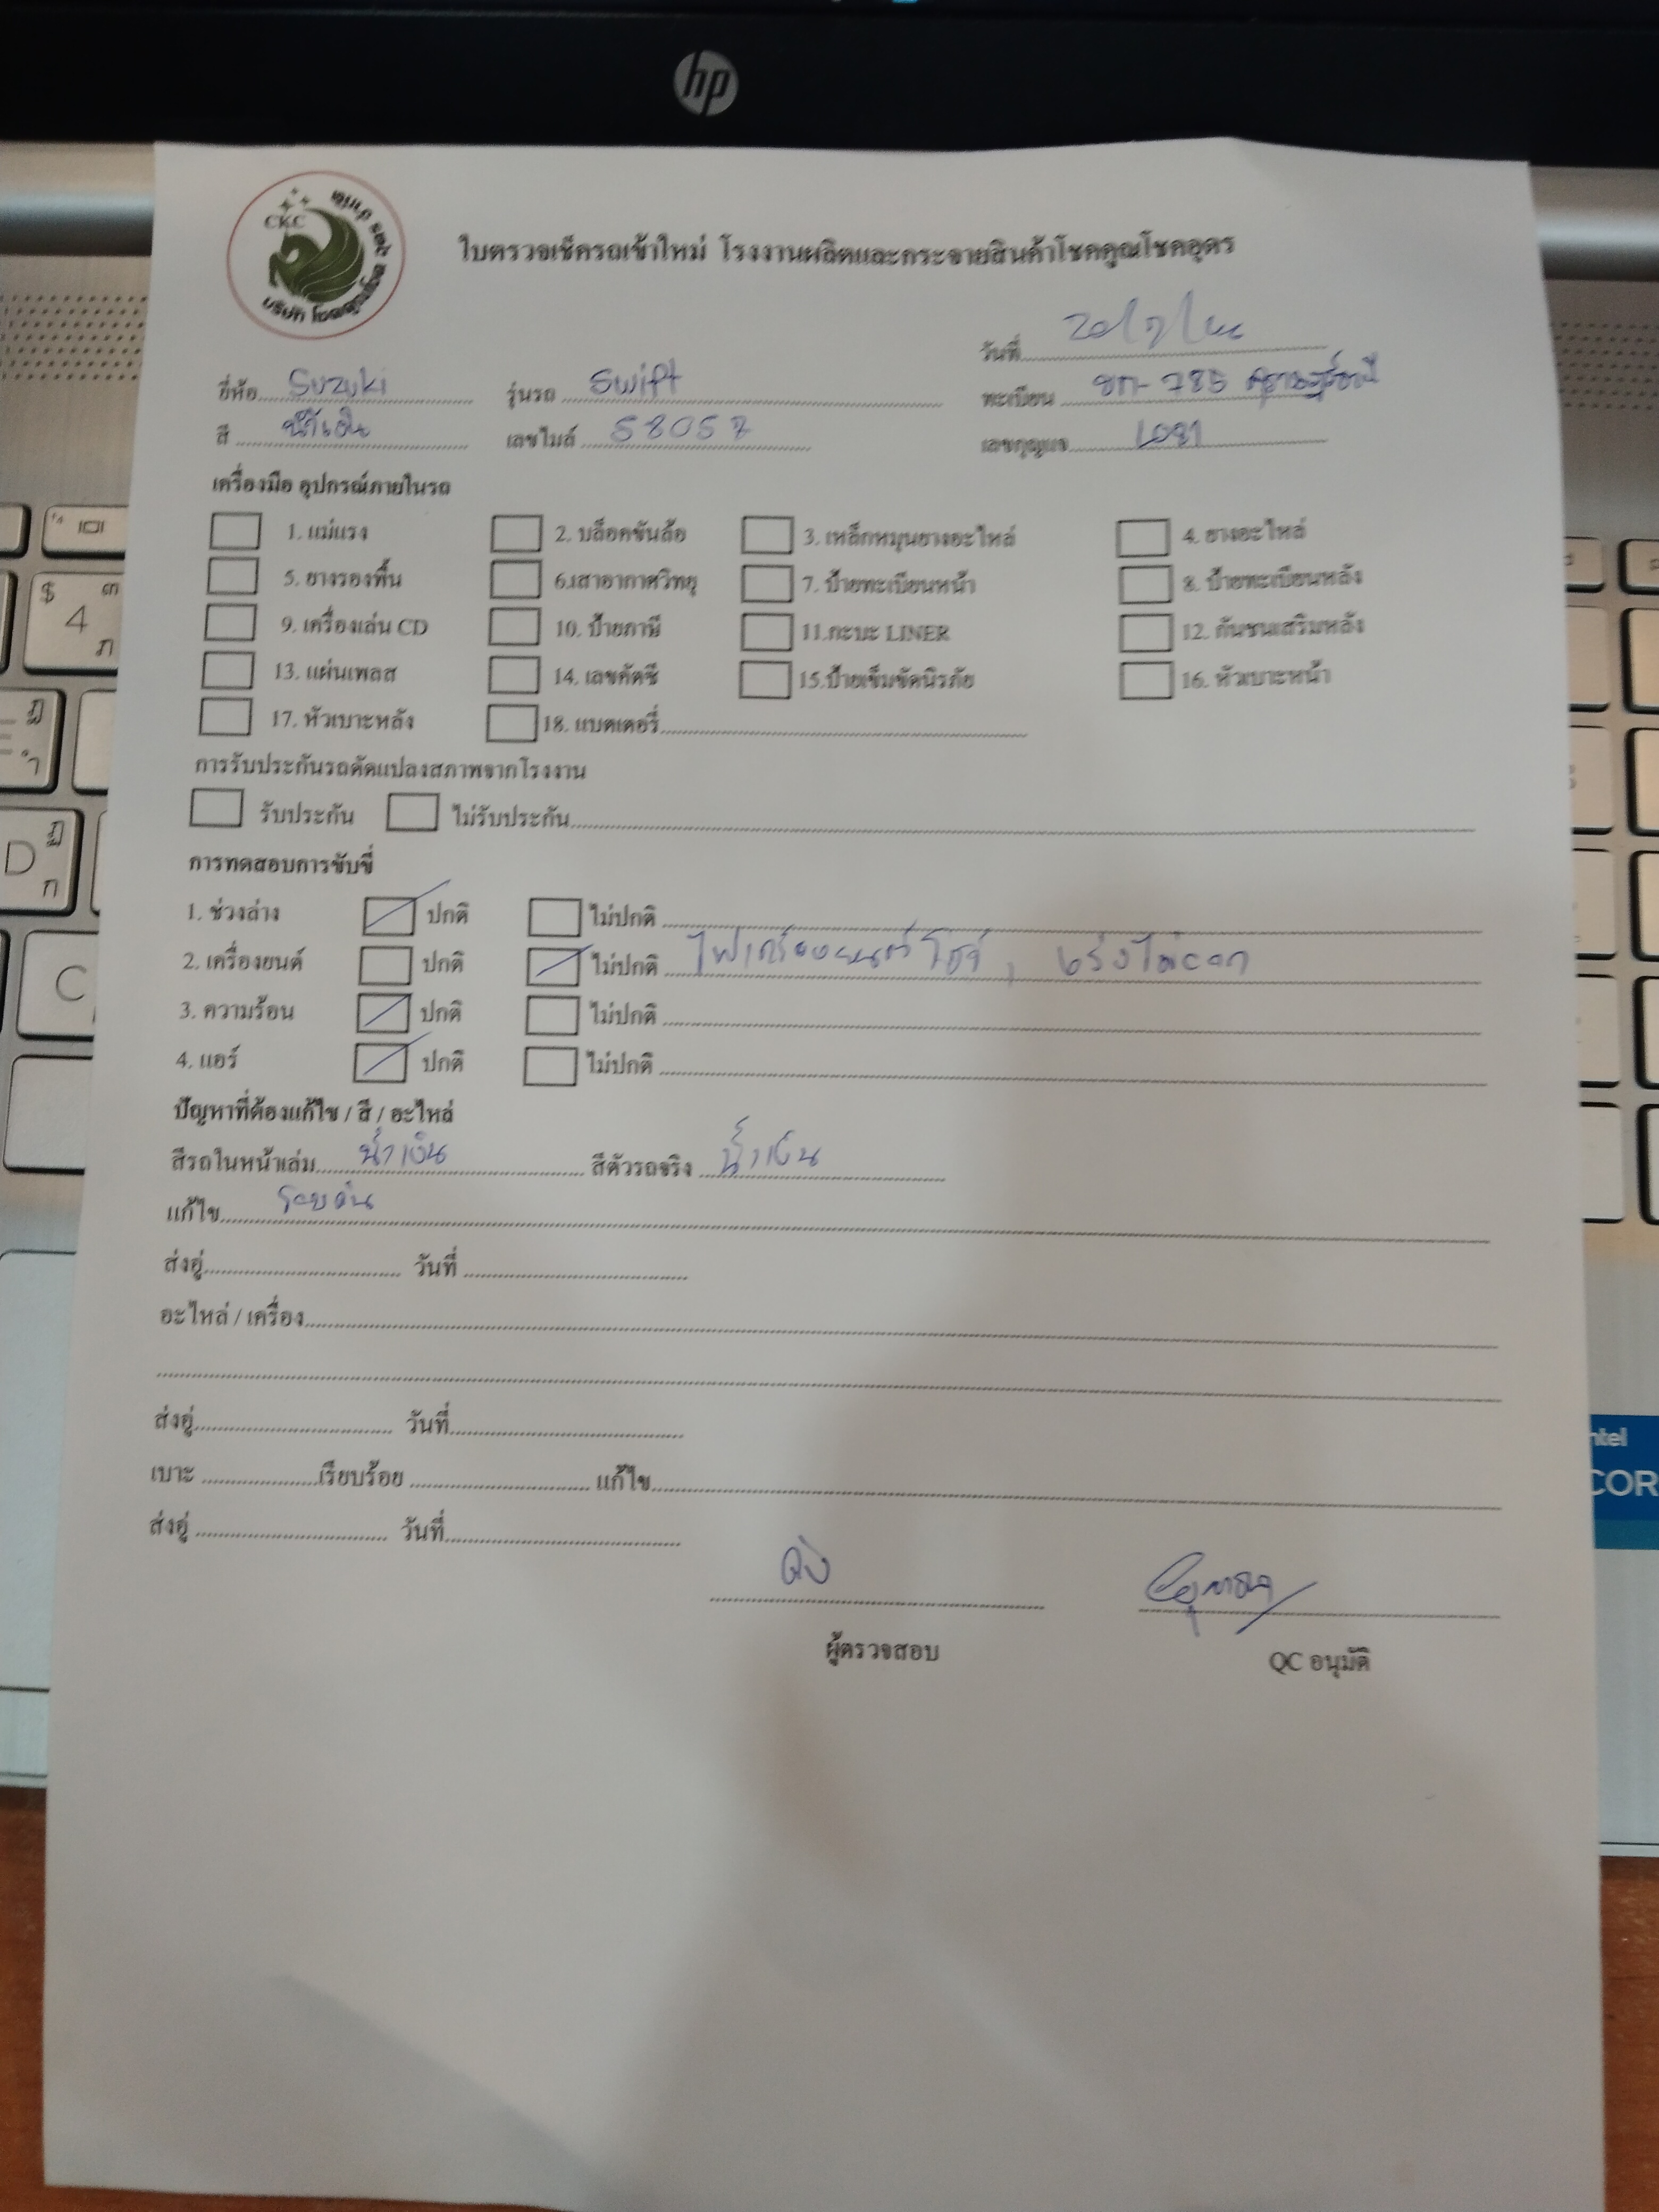 hp
CKC
บริษัท โชคคูณโชค อุดร จำกัด
ใบตรวจเช็ครถเข้าใหม่ โรงงานผลิตและกระจายสินค้าโชคคูณโชคอุดร
วันที่
ยี่ห้อ Suzuki รุ่นรถ Swift ทะเบียน ขก-785 สุราษฎร์ธานี
สี น้ำเงิน เลขไมล์ 58057 เลขกุญแจ
เครื่องมือ อุปกรณ์ภายในรถ
1. แม่แรง 2. บล็อคขันล้อ 3. เหล็กหมุนยางอะไหล่ 4. ยางอะไหล่
5. ยางรองพื้น 6.เสาอากาศวิทยุ 7. ป้ายทะเบียนหน้า 8. ป้ายทะเบียนหลัง
9. เครื่องเล่น CD 10. ป้ายภาษี 11.กะบะ LINER 12. กันชนเสริมหลัง
13. แผ่นเพลส 14. เลขคัตซี 15.ป้ายเข็มขัดนิรภัย 16. หัวเบาะหน้า
17. หัวเบาะหลัง 18. แบตเตอรี่
การรับประกันรถดัดแปลงสภาพจากโรงงาน
รับประกัน ไม่รับประกัน
การทดสอบการขับขี่
1. ช่วงล่าง ปกติ ไม่ปกติ
2. เครื่องยนต์ ปกติ ไม่ปกติ ไฟเครื่องยนต์โชว์, เร่งไม่ออก
3. ความร้อน ปกติ ไม่ปกติ
4. แอร์ ปกติ ไม่ปกติ
ปัญหาที่ต้องแก้ไข / สี / อะไหล่
สีรถในหน้าเล่ม น้ำเงิน สีตัวรถจริง น้ำเงิน
แก้ไข รอบคัน
ส่งอู่ วันที่
อะไหล่ / เครื่อง
ส่งอู่ วันที่
เบาะ เรียบร้อย แก้ไข
ส่งอู่ วันที่
ผู้ตรวจสอบ QC อนุมัติ